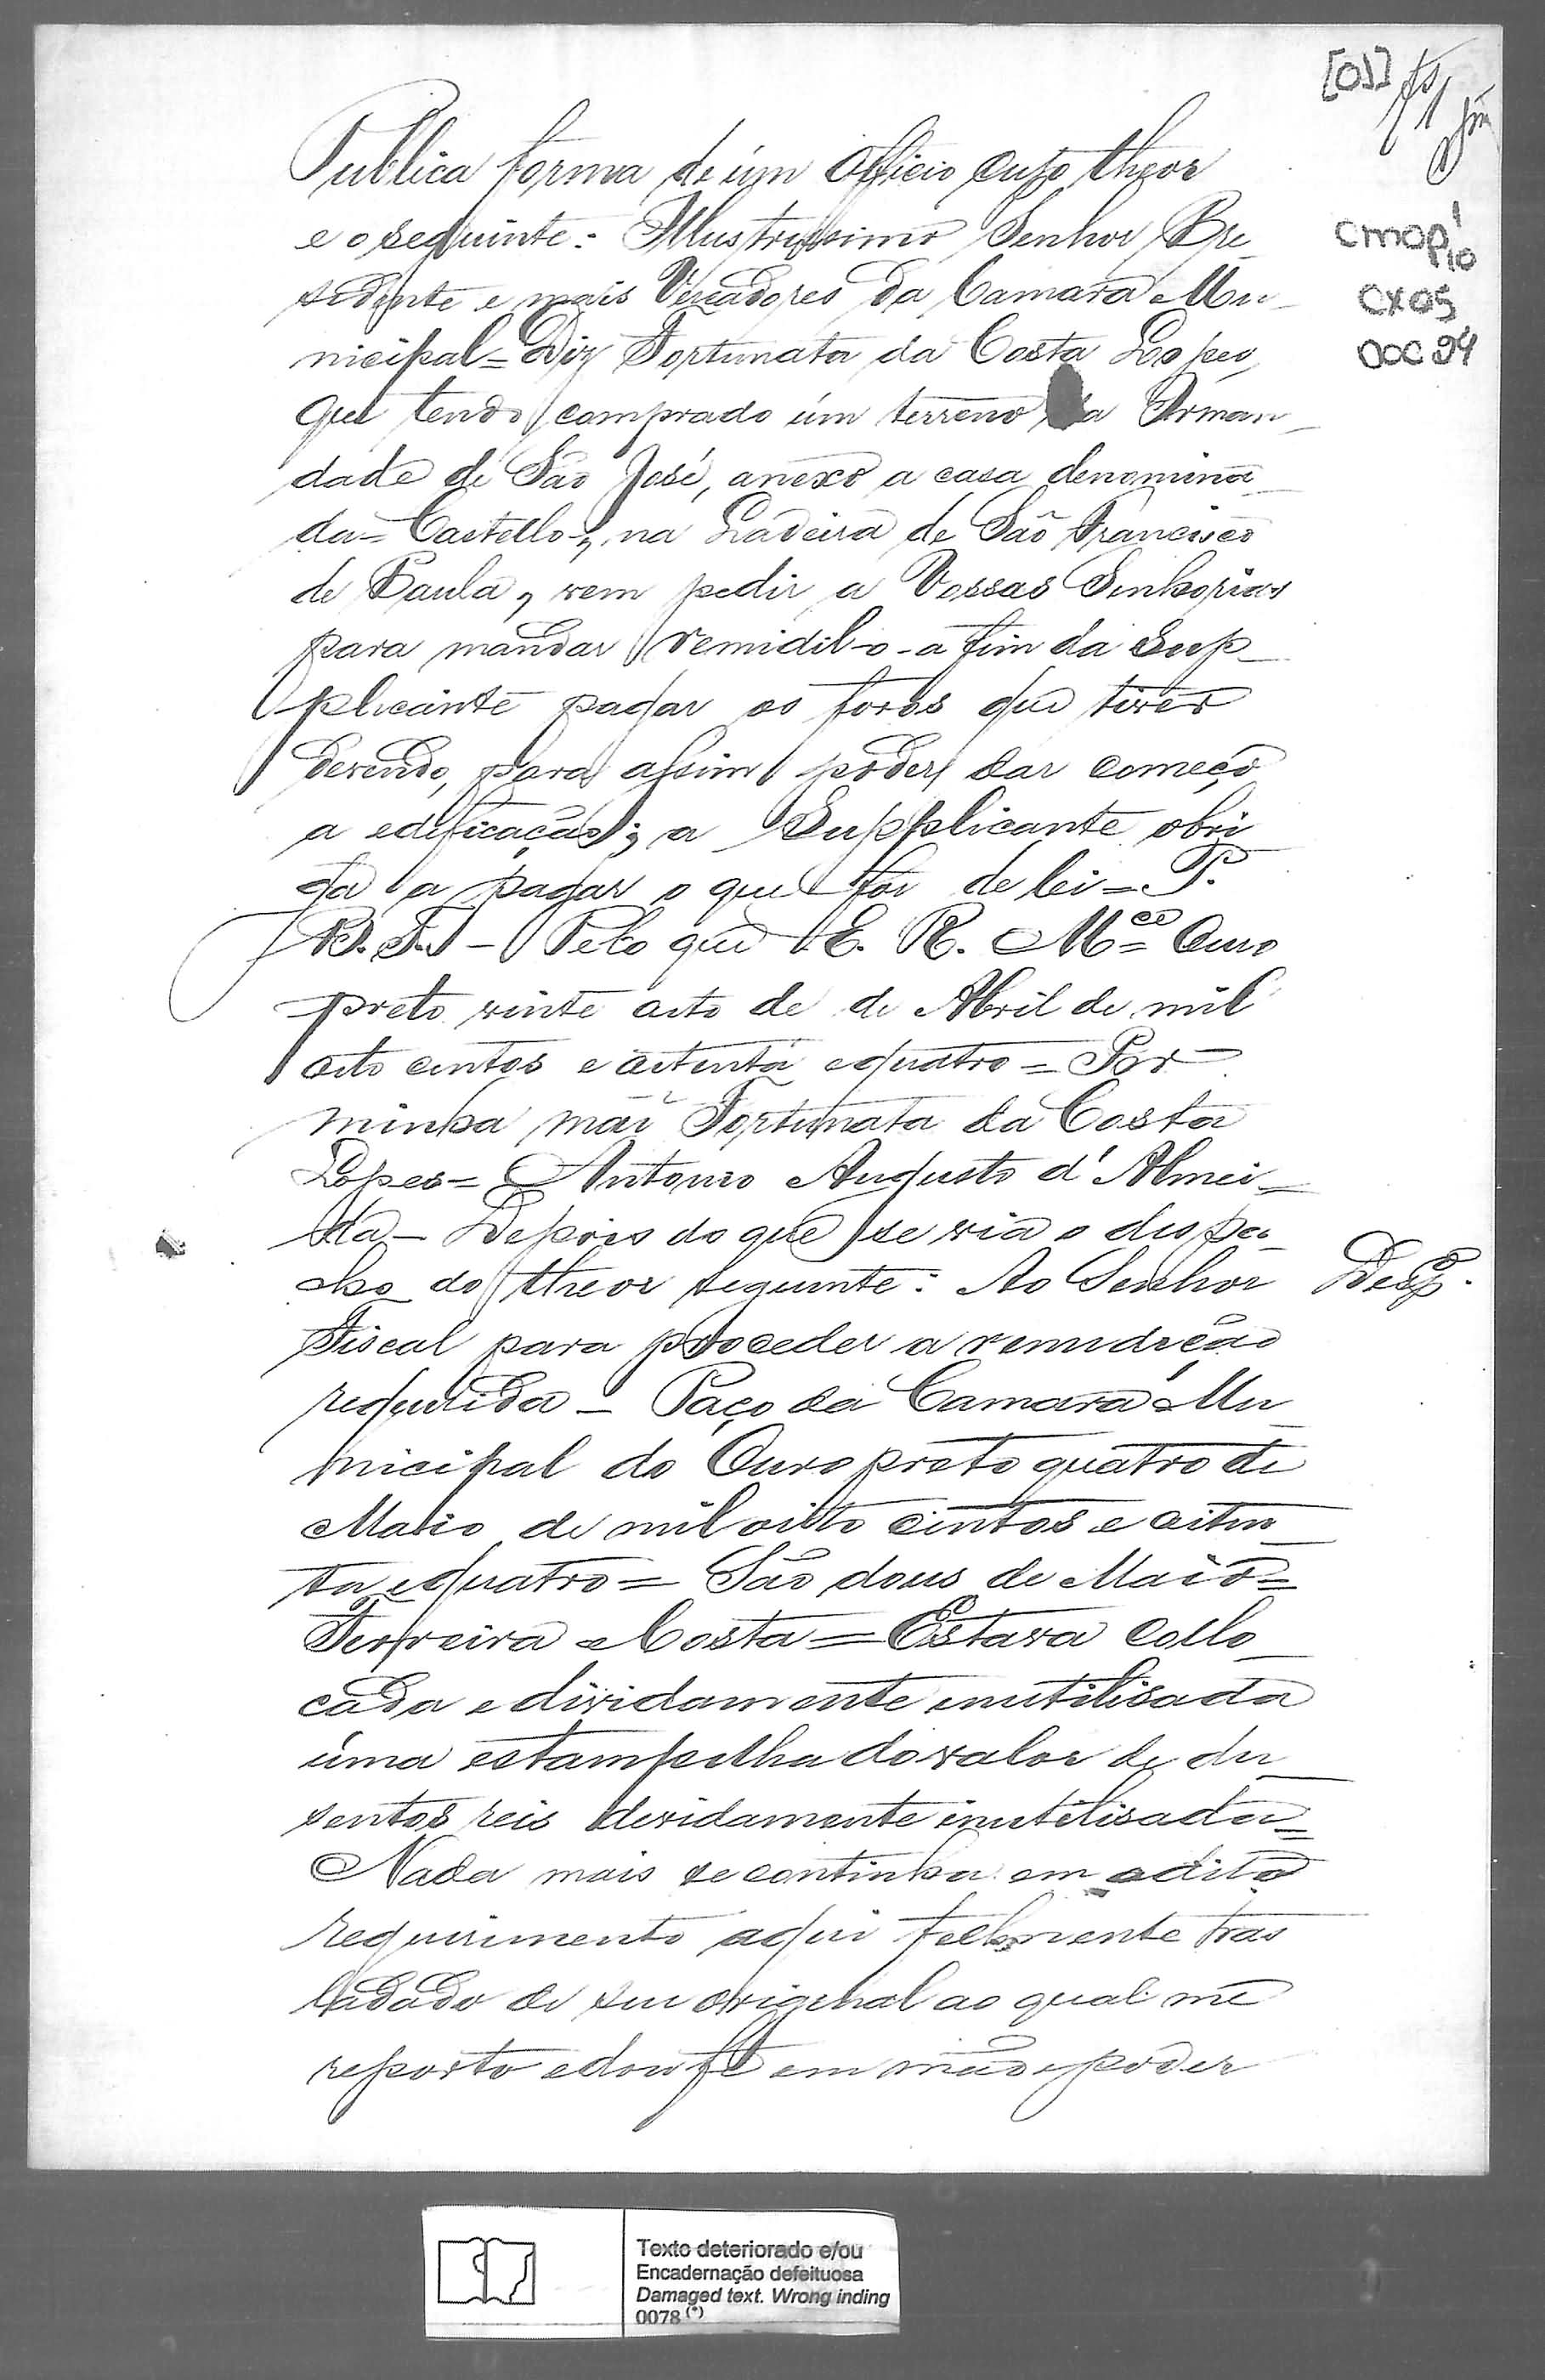 [01] fs 1
Publica forma de úm Officio cujo theor
e o seguinte: Illustrissimo Senhor Pre_
sedente e mais Vereadores da Camara Mu_
nicipal = Diz Fortunata da Costa Lopes,
que tendo comprado úm terreno da Irman_
dade de São José, anexo a casa denomina_
da = Castello =, na Ladeira de São Francisco
de Paula, vem pedir a Vossas Senhorias
para mandar remidil-o - a fim da Sup_
plicante pagar os foros que tiver
devendo, para assim poder dar começo
a edificação; a Supplicante obri
ga a pagar o que for de lei = P.
B. F. - Pelo que E. R. M.ce = Ouro
preto vinte oito de de Abril de mil
oito centos e oitenta equatro = Por
minha mãi Fortunata da Costa
Lopes = Antonio Augusto d'Almei_
da - Depois do que se via o despa_
cho do theor seguinte: Ao Senhor
Fiscal para proceder a remidição
requerida - Paço da Camara Mu_
nicipal do Ouro preto quatro de
Maio de mil oito centos e oiten_
ta equatro = São dous de Maio =
Ferreira Costa = Estava collo_
cada e dividamente inutilisada
úma estampilha do valor de du_
sentos reis devidamente inutilisada =
Nada mais se continha em o dito
requirimento aqui fielmente tras
ladado de seu original ao qual me
reporto e dou fé em mão e poder
Desp.
CMOP
CX 05
DOC 94
Texto deteriorado e/ou
Encadernação defeituosa
Damaged text. Wrong inding
0078 (*)